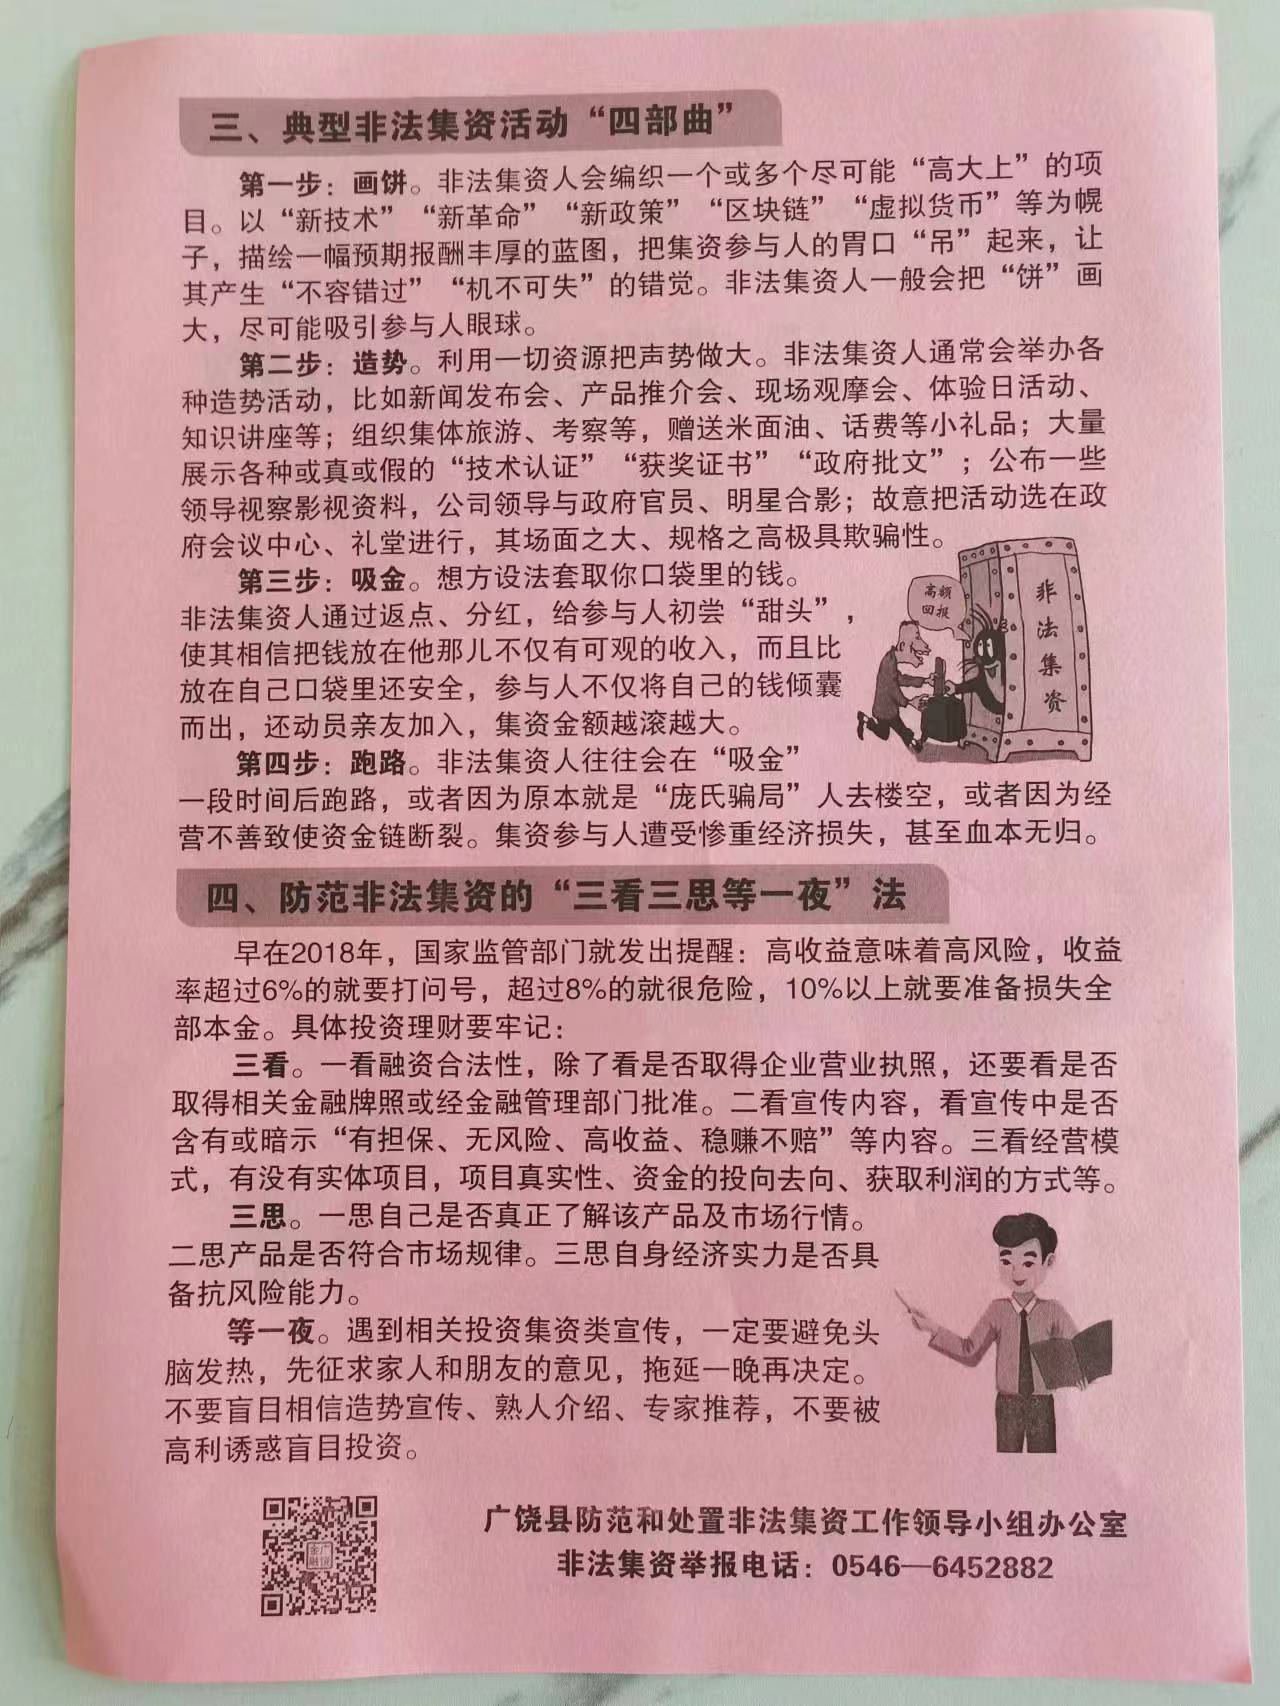 三、典型非法集资活动“四部曲”
第一步：画饼。非法集资人会编织一个或多个尽可能“高大上”的项
目。以“新技术”“新革命”“新政策”“区块链”“虚拟货币”等为幌
子，描绘一幅预期报酬丰厚的蓝图，把集资参与人的胃口“吊”起来，让
其产生“不容错过”“机不可失”的错觉。非法集资人一般会把“饼”画
大，尽可能吸引参与人眼球。
第二步：造势。利用一切资源把声势做大。非法集资人通常会举办各
种造势活动，比如新闻发布会、产品推介会、现场观摩会、体验日活动、
知识讲座等；组织集体旅游、考察等，赠送米面油、话费等小礼品；大量
展示各种或真或假的“技术认证”“获奖证书”“政府批文”；公布一些
领导视察影视资料，公司领导与政府官员、明星合影；故意把活动选在政
府会议中心、礼堂进行，其场面之大、规格之高极具欺骗性。
第三步：吸金。想方设法套取你口袋里的钱。
非法集资人通过返点、分红，给参与人初尝“甜头”，
使其相信把钱放在他那儿不仅有可观的收入，而且比
放在自己口袋里还安全，参与人不仅将自己的钱倾囊
而出，还动员亲友加入，集资金额越滚越大。
高额
回报
非法集资
第四步：跑路。非法集资人往往会在“吸金”
一段时间后跑路，或者因为原本就是“庞氏骗局”人去楼空，或者因为经
营不善致使资金链断裂。集资参与人遭受惨重经济损失，甚至血本无归。
四、防范非法集资的“三看三思等一夜”法
早在2018年，国家监管部门就发出提醒：高收益意味着高风险，收益
率超过6%的就要打问号，超过8%的就很危险，10%以上就要准备损失全
部本金。具体投资理财要牢记：
三看。一看融资合法性，除了看是否取得企业营业执照，还要看是否
取得相关金融牌照或经金融管理部门批准。二看宣传内容，看宣传中是否
含有或暗示“有担保、无风险、高收益、稳赚不赔”等内容。三看经营模
式，有没有实体项目，项目真实性、资金的投向去向、获取利润的方式等。
三思。一思自己是否真正了解该产品及市场行情。
二思产品是否符合市场规律。三思自身经济实力是否具
备抗风险能力。
等一夜。遇到相关投资集资类宣传，一定要避免头
脑发热，先征求家人和朋友的意见，拖延一晚再决定。
不要盲目相信造势宣传、熟人介绍、专家推荐，不要被
高利诱惑盲目投资。
广饶县防范和处置非法集资工作领导小组办公室
非法集资举报电话：0546—6452882